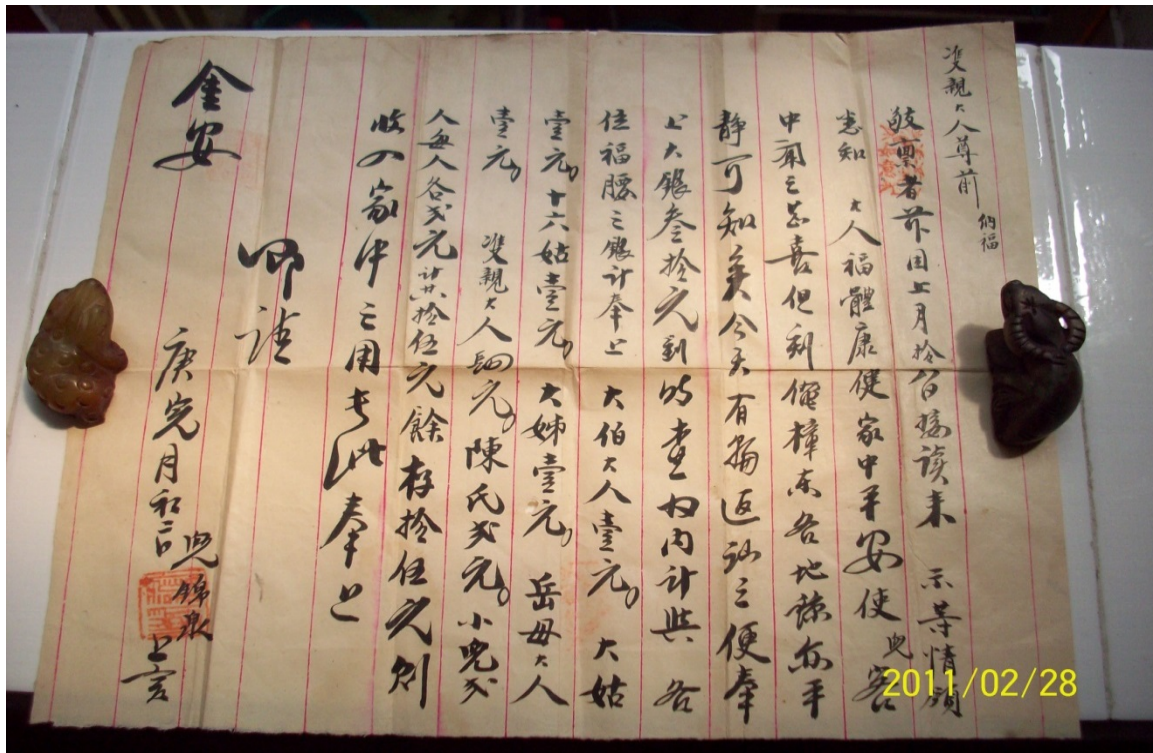 雙親大人尊前 納福
敬稟者前周上月拾八日接讀來 示等情頌
悉知 大人福體康健家中平安使兒客
中聞之甚喜但利儸樟東各地諒亦平
靜可知矣今天有輪返汕之便奉
上大銀叁拾元到時查收內計與 各
位福腰之銀計奉上 大伯大人壹元。大姑
壹元。十六姑壹元。大姊壹元。岳母大人
壹元。雙親大人四元。陳氏弍元。小兒弍
人每人各弍元計共拾伍元餘存拾伍元則
收入家中之用專此奉上
叩請
金安
庚 月初二日兒錦泉 上言
2011/02/28